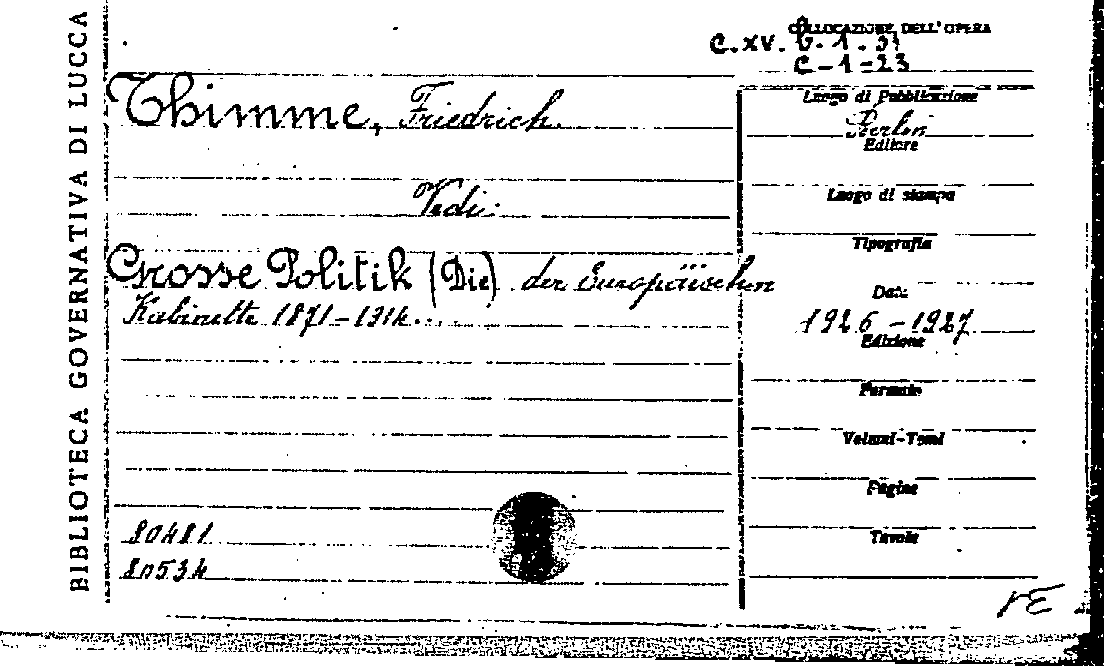 BIBLIOTECA GOVERNATIVA DI LUCCA
COLLOCAZIONE DELL'OPERA
C.XV. b.1.31
C-1-23
Thimme, Friedrich.
Vedi:
Grosse Politik (Die) der Europäischen
Kabinette 1871-1914...
80481
80534
Luogo di Pubblicazione
Berlin
Editore
Luogo di stampa
Tipografia
Data
1926-1927
Edizione
Formato
Volumi-Tomi
Pagine
Tavole